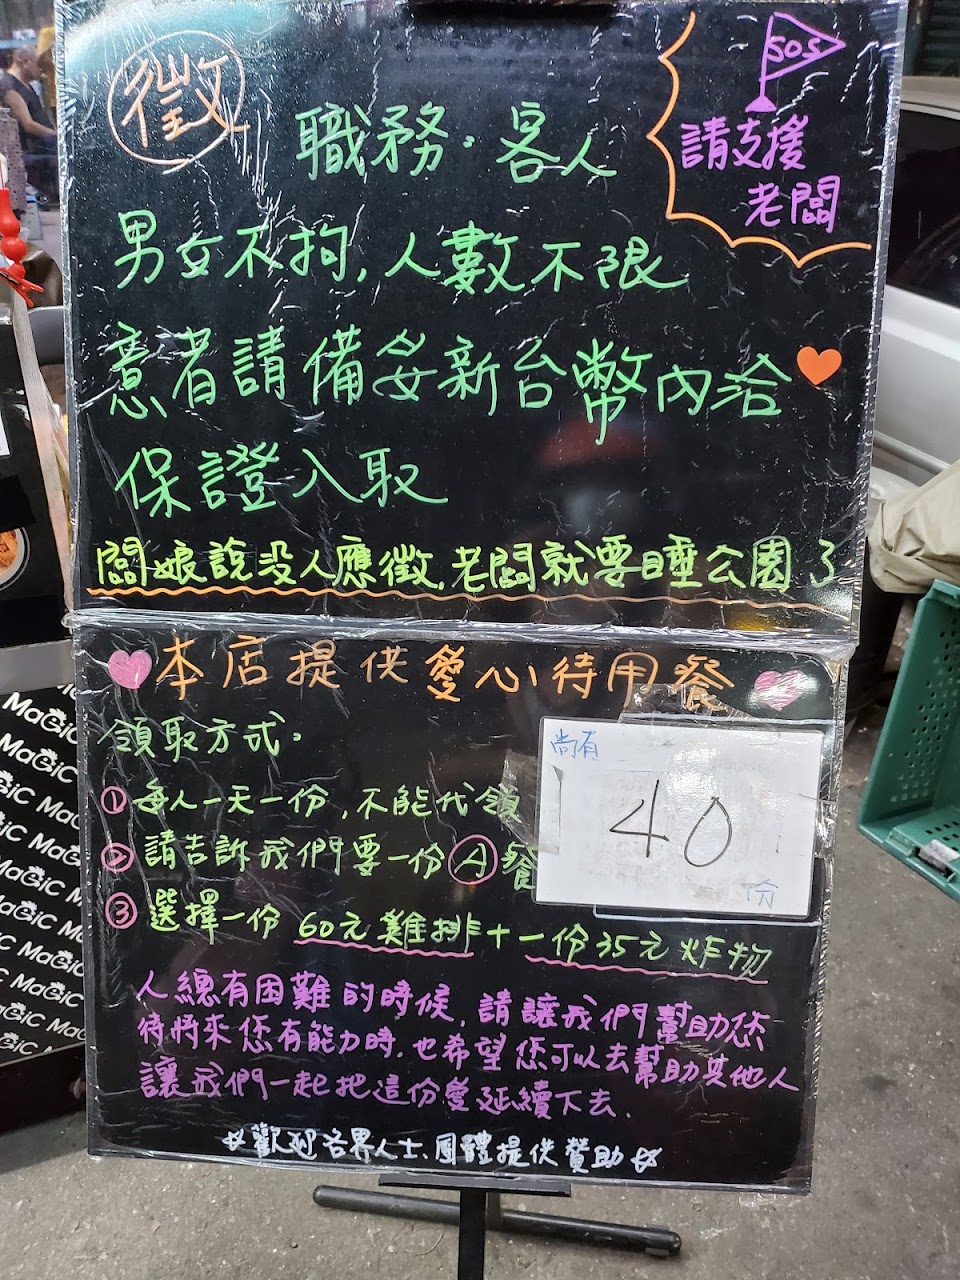 徵
SOS
請支援
老闆
職務：客人
男女不拘，人數不限
意者請備妥新台幣內洽
保證入取
闆娘說没人應徵，老闆就要睡公園了
本店提供愛心待用餐
領取方式：
尚有
40
份
①每人一天一份，不能代領
②請告訴我們要一份Ⓐ餐
③選擇一份60元雞排+一份35元炸物
人總有困難的時候，請讓我們幫助您
待將來您有能力時，也希望您可以去幫助其他人
讓我們一起把這份愛延續下去.
☆歡迎各界人士、團體提供贊助☆
MaGiC
MaGiC
MaGiC
MaGiC
MaGiC
MaGiC
MaGiC
MaGiC